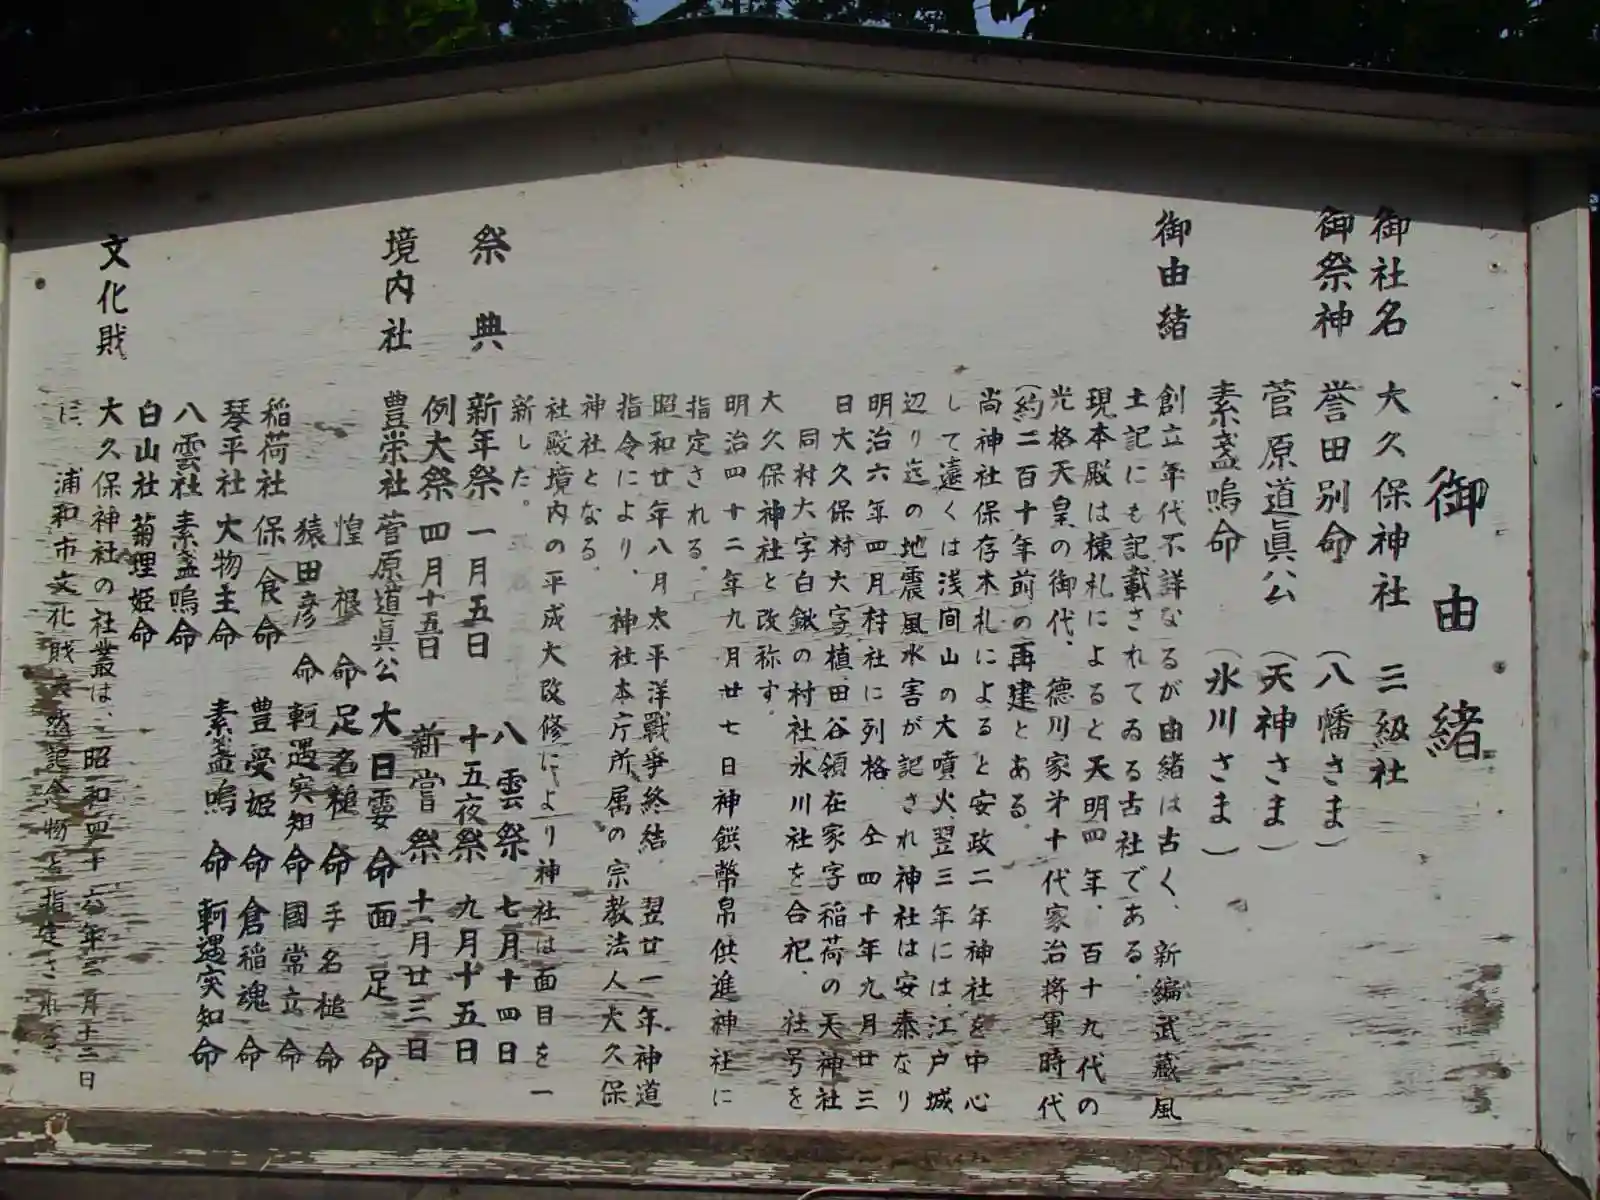 御由緒
御社名 大久保神社 三級社
御祭神 誉田別命 (八幡さま)
菅原道眞公 (天神さま)
素盞嗚命 (氷川さま)
御由緒 創立年代不詳なるが由緒は古く、新編武蔵風
土記にも記載されてゐる古社である。
現本殿は棟札によると天明四年、百十九代の
光格天皇の御代、德川家才十代家治将軍時代
(約二百十年前の再建とある。
尚神社保存木札によると安政二年神社を中心
して遠くは浅間山の大噴火翌三年には江戸城
辺り迄の地震風水害が記され神社は安泰なり
明治六年四月村社に列格 仝四十年九月廿三
日大久保村大字植田谷領在家字稲荷の天神社
同村大字白鍬の村社氷川社を合祀、社号を
大久保神社と改称す。
明治四十二年九月廿七日神饌幣帛供進神社に
指定される。
昭和廿年八月太平洋戰爭終結 翌廿一年神道
指令により、神社本庁所属の宗教法人大久保
神社となる。
社殿境内の平成大改修により神社は面目を一
新した。
祭典 新年祭 一月五日 八雲祭 七月十四日
例大祭 四月十五日 十五夜祭 九月十五日
新嘗祭 十一月廿三日
境内社 豊栄社 菅原道眞公 大日孁命 面足命
惶根命 足名槌命 手名槌命
猿田彦命 軻遇突知命 國常立命
稲荷社 保食命 豊受姫命 倉稲魂命
琴平社 大物主命 素盞嗚命 軻遇突知命
八雲社 素盞嗚命
白山社 菊理姫命
文化財 大久保神社の社叢は、昭和四十六年三月十二日
に、浦和市文化財天然記念物と指定され